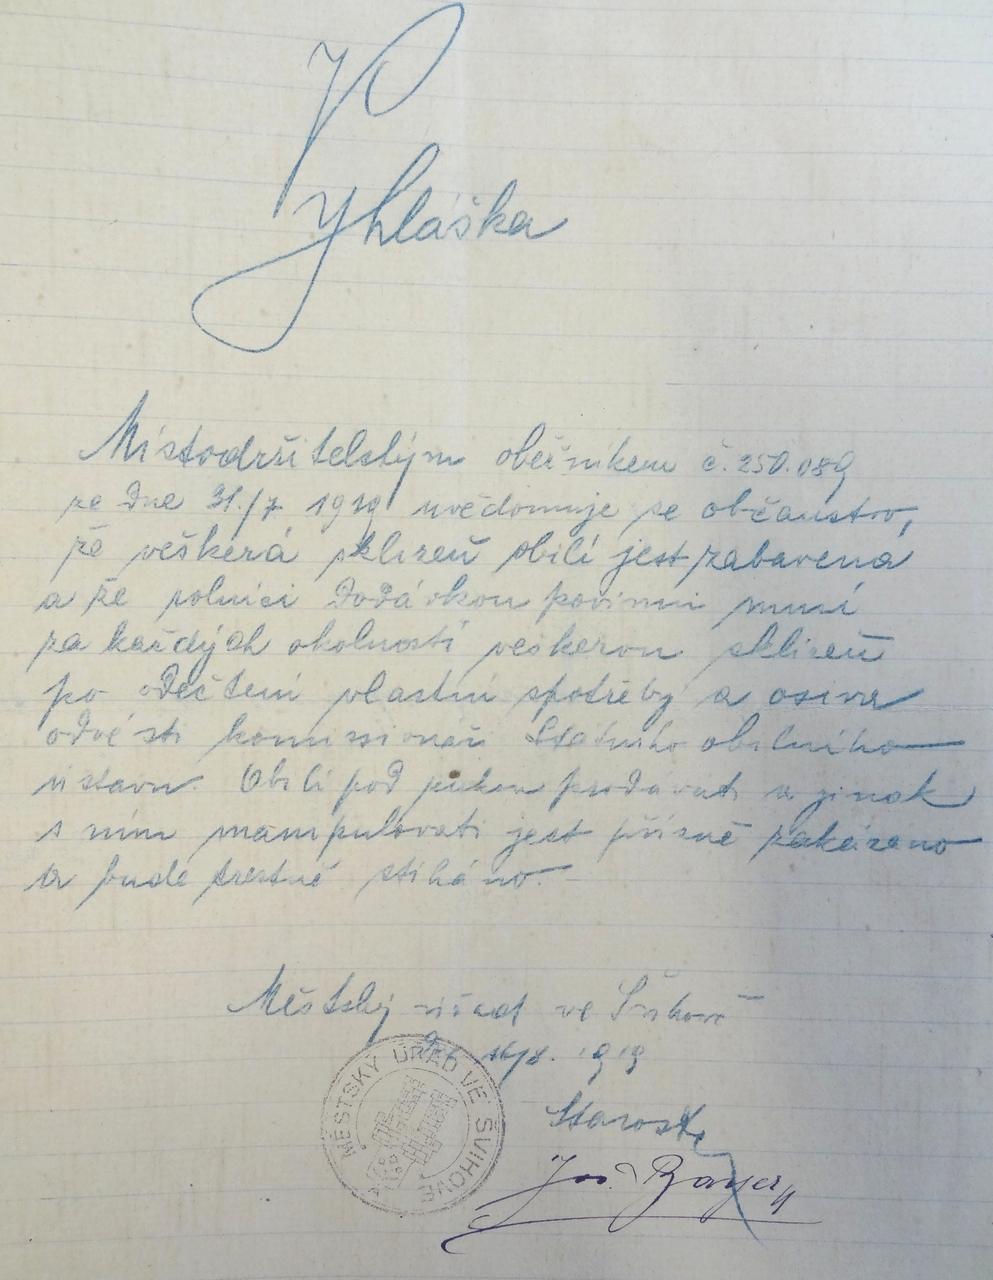 Vyhláška
Místodržitelským oběžníkem č. 250.089
ze dne 31./7. 1919 uvědomuje se občanstvo,
že veškerá sklizeň obilí jest zabavená
a že rolníci dodávkou povinni musí
za každých okolností veškerou sklizeň
po odečtení vlastní spotřeby a osiva
odvésti komisionáři Státního obilního
ústavu. Obilí pod rukou prodávati a jinak
s ním manipulovati jest přísně zakázano
a bude trestně stíháno.
Městský úřad ve Švihově
1919
MĚSTSKÝ ÚŘAD VE ŠVIHOVĚ
Starosta
Jos. Bayer